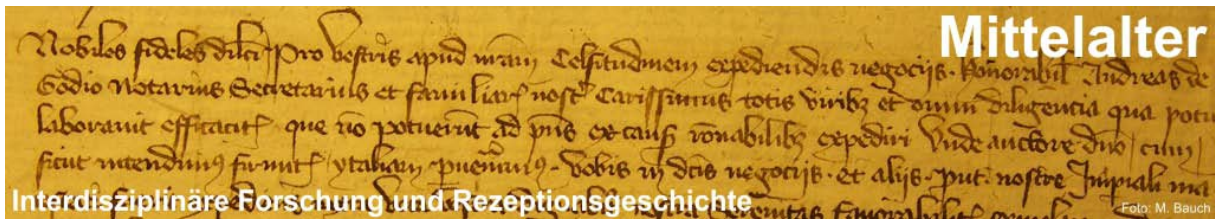 Mittelalter
Nobiles fideles dilcti Pro vestris apud nram Celsitudinem expediendis negocijs. honorabil Andreas de
Godio Notarius Secretarius et familiar nost Carissimus totis viribz et omni diligencia qua potu
laborauit efficacit que no potuerut ad pns ex caus ronabilibz expediri Vnde auctore dno cum
sicut intendimus firmit ytaliam vobis in dctis negocijs. et aliis nostre Imperiali ma
Interdisziplinäre Forschung und Rezeptionsgeschichte
Foto: M. Bauch